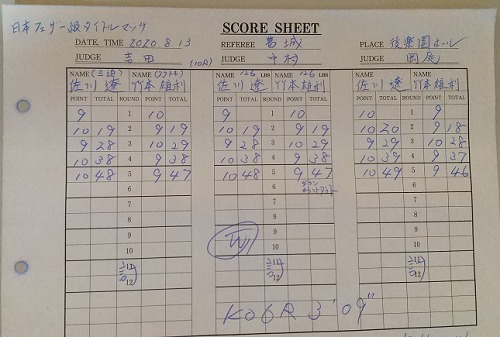 日本フェザー級タイトルマッチ
SCORE SHEET
DATE, TIME 2020.8.13 REFEREE 葛城 PLACE 後楽園ホール
JUDGE 吉田 (10R) JUDGE 中村 JUDGE 岡庭
NAME (三迫) NAME (ワタナベ) NAME 126 LBS NAME 126 LBS NAME NAME
佐川 遼 竹本雄利 佐川 遼 竹本雄利 佐川 遼 竹本雄利
POINT TOTAL ROUND POINT TOTAL POINT TOTAL ROUND POINT TOTAL POINT TOTAL ROUND POINT TOTAL
9 1 10 9 1 10 10 1 9
10 19 2 9 19 10 19 2 9 19 10 20 2 9 18
9 28 3 10 29 9 28 3 10 29 9 29 3 10 28
10 38 4 9 38 10 38 4 9 38 10 39 4 9 37
10 48 5 9 47 10 48 5 9 47 10 49 5 9 46
6 6 6
7 7 7
8 8 8
9 9 9
10 W 10 10
11 11 11
12 12 12
KO6R 3'09"